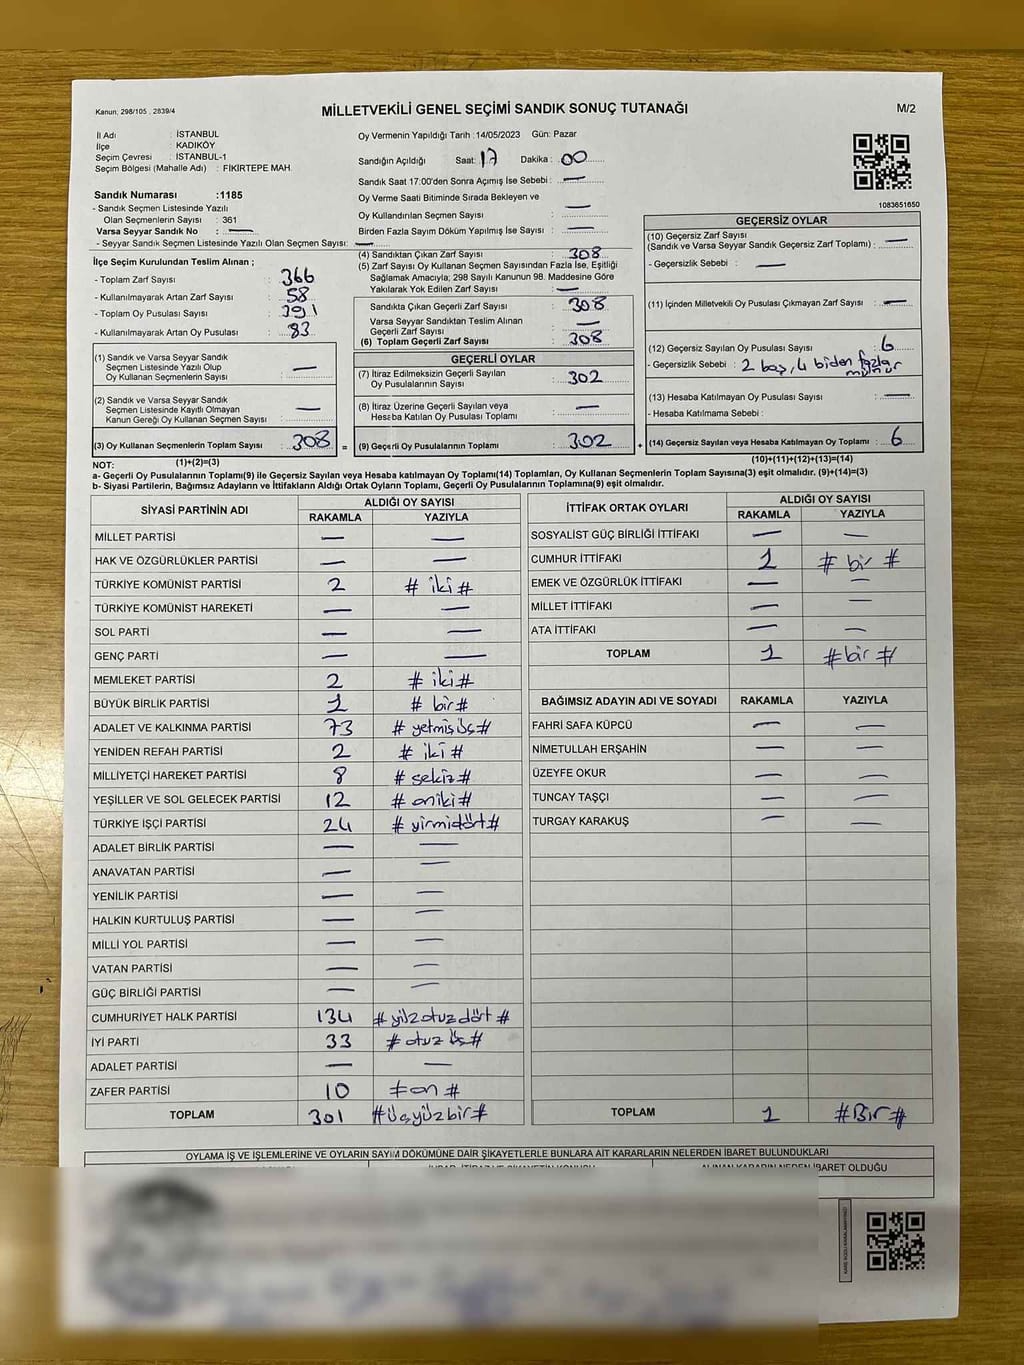 Kanun; 298/105 , 2839/4
MİLLETVEKİLİ GENEL SEÇİMİ SANDIK SONUÇ TUTANAĞI
M/2
İl Adı : İSTANBUL
İlçe : KADIKÖY
Seçim Çevresi : İSTANBUL-1
Seçim Bölgesi (Mahalle Adı) : FİKİRTEPE MAH.
Sandık Numarası :1185
- Sandık Seçmen Listesinde Yazılı
Olan Seçmenlerin Sayısı : 361
Varsa Seyyar Sandık No : —
- Seyyar Sandık Seçmen Listesinde Yazılı Olan Seçmen Sayısı: —
İlçe Seçim Kurulundan Teslim Alınan ;
- Toplam Zarf Sayısı : 366
- Kullanılmayarak Artan Zarf Sayısı : 58
- Toplam Oy Pusulası Sayısı : 391
- Kullanılmayarak Artan Oy Pusulası : 83
(1) Sandık ve Varsa Seyyar Sandık
Seçmen Listesinde Yazılı Olup
Oy Kullanan Seçmenlerin Sayısı : —
(2) Sandık ve Varsa Seyyar Sandık
Seçmen Listesinde Kayıtlı Olmayan
Kanun Gereği Oy Kullanan Seçmen Sayısı : —
(3) Oy Kullanan Seçmenlerin Toplam Sayısı : 308 =
(1)+(2)=(3)
Oy Vermenin Yapıldığı Tarih : 14/05/2023 Gün: Pazar
Sandığın Açıldığı Saat: 17 Dakika : 00
Sandık Saat 17:00'den Sonra Açımış İse Sebebi : —
Oy Verme Saati Bitiminde Sırada Bekleyen ve
Oy Kullandırılan Seçmen Sayısı : —
Birden Fazla Sayım Döküm Yapılmış İse Sayısı : —
(4) Sandıktan Çıkan Zarf Sayısı : 308
(5) Zarf Sayısı Oy Kullanan Seçmen Sayısından Fazla İse, Eşitliği
Sağlamak Amacıyla; 298 Sayılı Kanunun 98. Maddesine Göre
Yakılarak Yok Edilen Zarf Sayısı : —
Sandıkta Çıkan Geçerli Zarf Sayısı : 308
Varsa Seyyar Sandıktan Teslim Alınan
Geçerli Zarf Sayısı : —
(6) Toplam Geçerli Zarf Sayısı : 308
GEÇERLİ OYLAR
(7) İtiraz Edilmeksizin Geçerli Sayılan
Oy Pusulalarının Sayısı : 302
(8) İtiraz Üzerine Geçerli Sayılan veya
Hesaba Katılan Oy Pusulası Toplamı : —
(9) Geçerli Oy Pusulalarının Toplamı : 302 +
1083651650
GEÇERSİZ OYLAR
(10) Geçersiz Zarf Sayısı
(Sandık ve Varsa Seyyar Sandık Geçersiz Zarf Toplamı) : —
- Geçersizlik Sebebi : —
(11) İçinden Milletvekili Oy Pusulası Çıkmayan Zarf Sayısı : —
(12) Geçersiz Sayılan Oy Pusulası Sayısı : 6
- Geçersizlik Sebebi : 2 boş, 4 birden fazla mühür
(13) Hesaba Katılmayan Oy Pusulası Sayısı : —
- Hesaba Katılmama Sebebi :
(14) Geçersiz Sayılan veya Hesaba Katılmayan Oy Toplamı : 6
(10)+(11)+(12)+(13)=(14)
NOT:
a- Geçerli Oy Pusulalarının Toplamı(9) ile Geçersiz Sayılan veya Hesaba katılmayan Oy Toplamı(14) Toplamları, Oy Kullanan Seçmenlerin Toplam Sayısına(3) eşit olmalıdır. (9)+(14)=(3)
b- Siyasi Partilerin, Bağımsız Adayların ve İttifakların Aldığı Ortak Oyların Toplamı, Geçerli Oy Pusulalarının Toplamına(9) eşit olmalıdır.
SİYASİ PARTİNİN ADI ALDIĞI OY SAYISI
RAKAMLA YAZIYLA
MİLLET PARTİSİ — —
HAK VE ÖZGÜRLÜKLER PARTİSİ — —
TÜRKİYE KOMÜNİST PARTİSİ 2 # iki #
TÜRKİYE KOMÜNİST HAREKETİ — —
SOL PARTİ — —
GENÇ PARTİ — —
MEMLEKET PARTİSİ 2 # iki #
BÜYÜK BİRLİK PARTİSİ 1 # bir #
ADALET VE KALKINMA PARTİSİ 73 # yetmişüç #
YENİDEN REFAH PARTİSİ 2 # iki #
MİLLİYETÇİ HAREKET PARTİSİ 8 # sekiz #
YEŞİLLER VE SOL GELECEK PARTİSİ 12 # oniki #
TÜRKİYE İŞÇİ PARTİSİ 24 # yirmidört #
ADALET BİRLİK PARTİSİ — —
ANAVATAN PARTİSİ — —
YENİLİK PARTİSİ — —
HALKIN KURTULUŞ PARTİSİ — —
MİLLİ YOL PARTİSİ — —
VATAN PARTİSİ — —
GÜÇ BİRLİĞİ PARTİSİ — —
CUMHURİYET HALK PARTİSİ 134 # yüzotuzdört #
İYİ PARTİ 33 # otuz üç #
ADALET PARTİSİ — —
ZAFER PARTİSİ 10 # on #
TOPLAM 301 # üçyüzbir #
İTTİFAK ORTAK OYLARI ALDIĞI OY SAYISI
RAKAMLA YAZIYLA
SOSYALİST GÜÇ BİRLİĞİ İTTİFAKI — —
CUMHUR İTTİFAKI 1 # bir #
EMEK VE ÖZGÜRLÜK İTTİFAKI — —
MİLLET İTTİFAKI — —
ATA İTTİFAKI — —
TOPLAM 1 # bir #
BAĞIMSIZ ADAYIN ADI VE SOYADI RAKAMLA YAZIYLA
FAHRİ SAFA KÜPCÜ — —
NİMETULLAH ERŞAHİN — —
ÜZEYFE OKUR — —
TUNCAY TAŞÇI — —
TURGAY KARAKUŞ — —
TOPLAM 1 # Bir #
OYLAMA İŞ VE İŞLEMLERİNE VE OYLARIN SAYIM DÖKÜMÜNE DAİR ŞİKAYETLERLE BUNLARA AİT KARARLARIN NELERDEN İBARET BULUNDUKLARI
ALINAN KARARIN NEDEN İBARET OLDUĞU